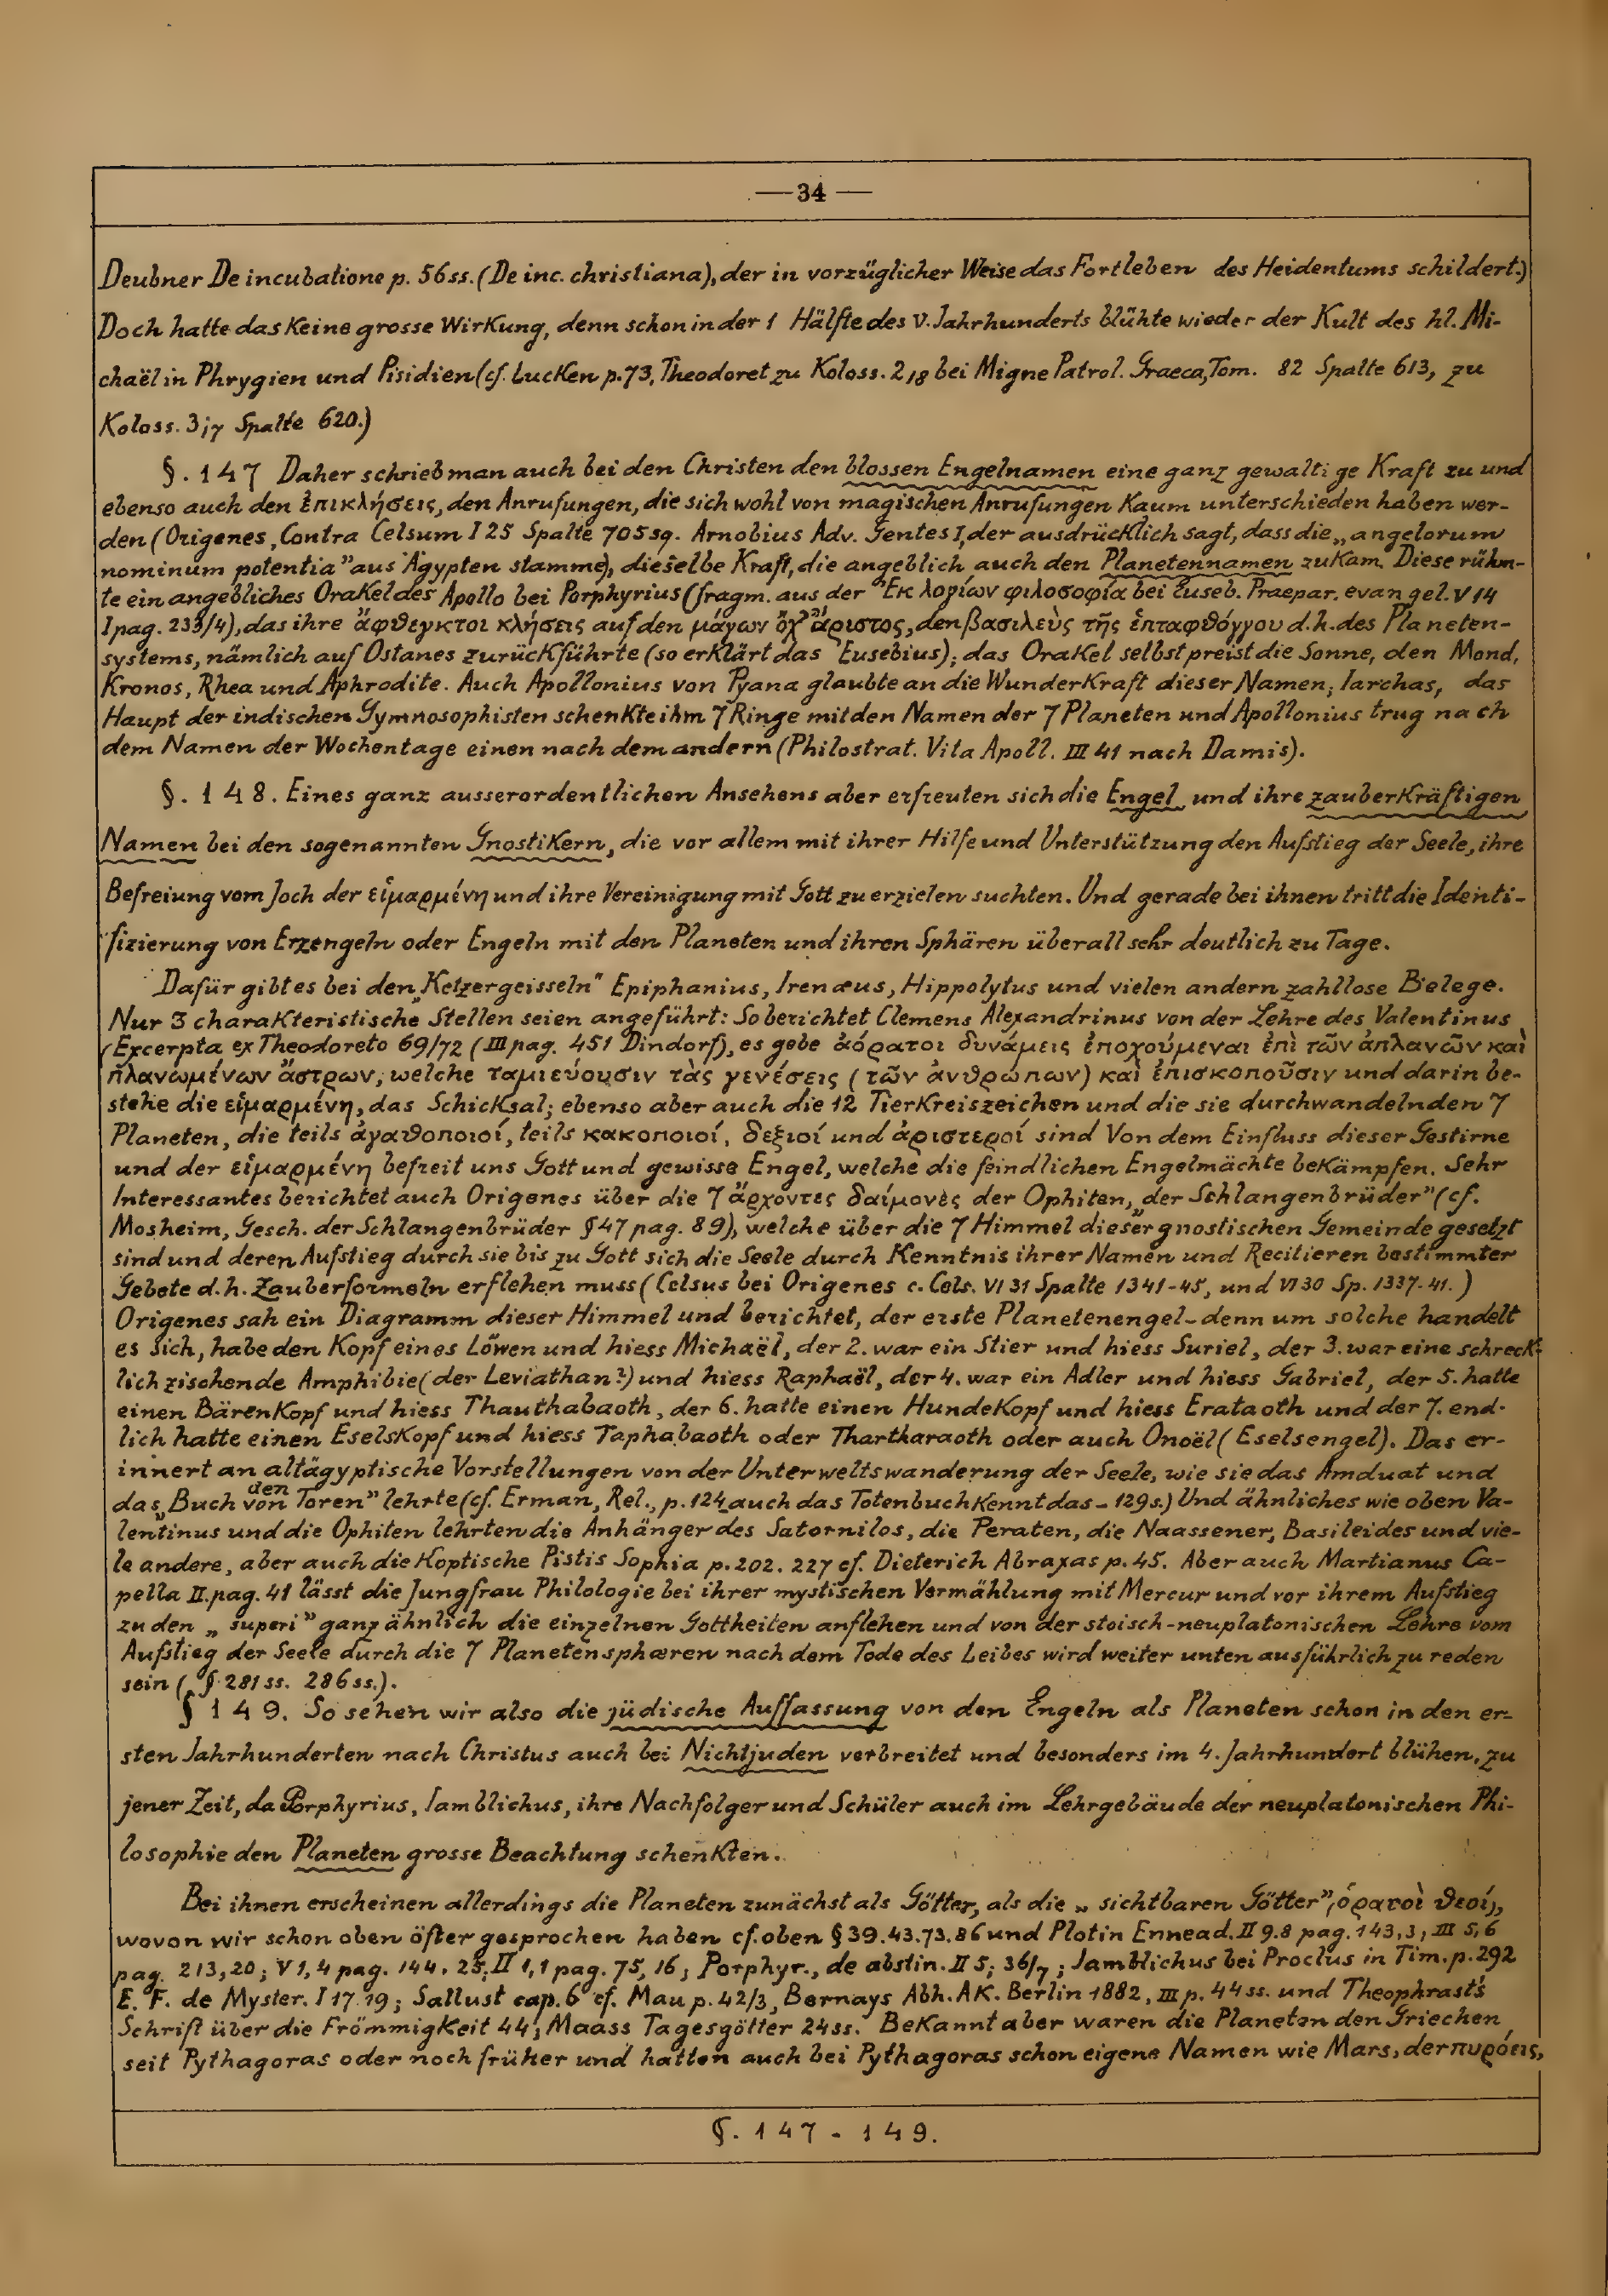 — 34 —
Deubner De incubatione p. 56ss. (De inc. christiana), der in vorzüglicher Weise das Fortleben des Heidentums schildert.)
Doch hatte das keine grosse Wirkung, denn schon in der 1 Hälfte des V. Jahrhunderts blühte wieder der Kult des hl. Mi-
chaël in Phrygien und Pisidien (cf. Lucken p. 73, Theodoret zu Koloss. 2,18 bei Migne Patrol. Graeca, Tom. 82 Spalte 613, zu
Koloss. 3;7 Spalte 620.)
§. 147 Daher schrieb man auch bei den Christen den blossen Engelnamen eine ganz gewaltige Kraft zu und
ebenso auch den ἐπικλήσεις, den Anrufungen, die sich wohl von magischen Anrufungen kaum unterschieden haben wer-
den (Origenes, Contra Celsum I 25 Spalte 705 sq. Arnobius Adv. Gentes I, der ausdrücklich sagt, dass die „angelorum
nominum potentia” aus Ägypten stamme), dieselbe Kraft, die angeblich auch den Planetennamen zukam. Diese rühm-
te ein angebliches Orakel des Apollo bei Porphyrius (fragm. aus der Ἐκ λογίων φιλοσοφία bei Euseb. Praepar. evangel. V 14
1 pag. 233/4), das ihre ἄφθεγκτοι κλήσεις auf den μάγων ὄχ' ἄριστος, den βασιλεὺς τῆς ἑπταφθόγγου d.h. des Planeten-
systems, nämlich auf Ostanes zurückführte (so erklärt das Eusebius); das Orakel selbst preist die Sonne, den Mond,
Kronos, Rhea und Aphrodite. Auch Apollonius von Tyana glaubte an die Wunderkraft dieser Namen; Iarchas, das
Haupt der indischen Gymnosophisten schenkte ihm 7 Ringe mit den Namen der 7 Planeten und Apollonius trug nach
dem Namen der Wochentage einen nach dem andern (Philostrat. Vita Apoll. III 41 nach Damis).
§. 148. Eines ganz ausserordentlichen Ansehens aber erfreuten sich die Engel und ihre zauberkräftigen
Namen bei den sogenannten Gnostikern, die vor allem mit ihrer Hilfe und Unterstützung den Aufstieg der Seele, ihre
Befreiung vom Joch der εἱμαρμένη und ihre Vereinigung mit Gott zu erzielen suchten. Und gerade bei ihnen tritt die Identi-
fizierung von Erzengeln oder Engeln mit den Planeten und ihren Sphären überall sehr deutlich zu Tage.
Dafür gibt es bei den „Ketzergeisseln” Epiphanius, Irenæus, Hippolytus und vielen andern zahllose Belege.
Nur 3 charakteristische Stellen seien angeführt: So berichtet Clemens Alexandrinus von der Lehre des Valentinus
(Excerpta ex Theodoreto 69/72 (III pag. 451 Dindorf), es gebe ἀόρατοι δυνάμεις ἐποχούμεναι ἐπὶ τῶν ἀπλανῶν καὶ
πλανωμένων ἄστρων, welche ταμιεύουσιν τὰς γενέσεις (τῶν ἀνθρώπων) καὶ ἐπισκοποῦσιν und darin be-
stehe die εἱμαρμένη, das Schicksal; ebenso aber auch die 12 Tierkreiszeichen und die sie durchwandelnden 7
Planeten, die teils ἀγαθοποιοί, teils κακοποιοί, δεξιοί und ἀριστεροί sind Von dem Einfluss dieser Gestirne
und der εἱμαρμένη befreit uns Gott und gewisse Engel, welche die feindlichen Engelmächte bekämpfen. Sehr
Interessantes berichtet auch Origenes über die 7 ἄρχοντες δαίμονὲς der Ophiten, „der Schlangenbrüder” (cf.
Mosheim, Gesch. der Schlangenbrüder § 47 pag. 89), welche über die 7 Himmel dieser gnostischen Gemeinde gesetzt
sind und deren Aufstieg durch sie bis zu Gott sich die Seele durch Kenntnis ihrer Namen und Recitieren bestimmter
Gebete d.h. Zauberformeln erflehen muss (Celsus bei Origenes c. Cels. VI 31 Spalte 1341-45, und VI 30 Sp. 1337-41.)
Origenes sah ein Diagramm dieser Himmel und berichtet, der erste Planetenengel - denn um solche handelt
es sich, habe den Kopf eines Löwen und hiess Michaël, der 2. war ein Stier und hiess Suriel, der 3. war eine schreck-
lich zischende Amphibie (der Leviathan?) und hiess Raphaël, der 4. war ein Adler und hiess Gabriel, der 5. hatte
einen Bärenkopf und hiess Thauthabaoth, der 6. hatte einen Hundekopf und hiess Erataoth und der 7. end-
lich hatte einen Eselskopf und hiess Taphabaoth oder Thartharaoth oder auch Onoël (Eselsengel). Das er-
innert an altägyptische Vorstellungen von der Unterweltswanderung der Seele, wie sie das Amduat und
das „Buch von den Toren” lehrte (cf. Erman, Rel., p. 124 auch das Totenbuch kennt das - 129s.) Und ähnliches wie oben Va-
lentinus und die Ophiten lehrten die Anhänger des Satornilos, die Peraten, die Naassener, Basileides und vie-
le andere, aber auch die koptische Pistis Sophia p. 202. 227 cf. Dieterich Abraxas p. 45. Aber auch Martianus Ca-
pella II. pag. 41 lässt die Jungfrau Philologie bei ihrer mystischen Vermählung mit Mercur und vor ihrem Aufstieg
zu den „superi” ganz ähnlich die einzelnen Gottheiten anflehen und von der stoisch-neuplatonischen Lehre vom
Aufstieg der Seele durch die 7 Planetensphæren nach dem Tode des Leibes wird weiter unten ausführlich zu reden
sein (§ 281ss. 286ss.).
§ 149. So sehen wir also die jüdische Auffassung von den Engeln als Planeten schon in den er-
sten Jahrhunderten nach Christus auch bei Nichtjuden verbreitet und besonders im 4. Jahrhundert blühen, zu
jener Zeit, da Porphyrius, Iamblichus, ihre Nachfolger und Schüler auch im Lehrgebäude der neuplatonischen Phi-
losophie den Planeten grosse Beachtung schenkten.
Bei ihnen erscheinen allerdings die Planeten zunächst als Götter, als die „sichtbaren Götter”, (ὁρατοὶ θεοί),
wovon wir schon oben öfter gesprochen haben cf. oben § 39.43.73.86 und Plotin Ennead. II 9.8 pag. 143,3; III 5,6
pag. 213,20; V 1,4 pag. 144. 25; II 1,1 pag. 75, 16; Porphyr., de abstin. II 5; 36/7; Jamblichus bei Proclus in Tim. p. 292
E. F. de Myster. I 17. 19; Sallust cap. 6 cf. Mau p. 42/3, Bernays Abh. Ak. Berlin 1882, III p. 44ss. und Theophrasts
Schrift über die Frömmigkeit 44; Maass Tagesgötter 24ss. Bekannt aber waren die Planeten den Griechen
seit Pythagoras oder noch früher und hatten auch bei Pythagoras schon eigene Namen wie Mars, der πυρόεις,
§. 147 - 149.